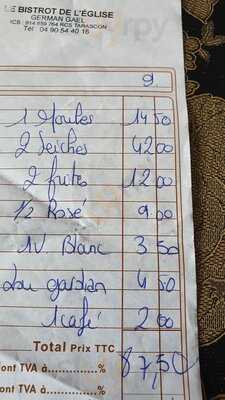 LE BISTROT DE L'ÉGLISE
GERMAN GAEL
ICB : 914 659 764 RCS TARASCON
Tél : 04 90 54 40 16
9
1 Moules 14 50
2 Seiches 42 00
2 frites 12 00
1/2 Rosé 9 00
1 V. Blanc 3 50
gardian 4 50
1 café 2 00
Total Prix TTC 87,50
dont TVA à ............%
dont TVA à ............%